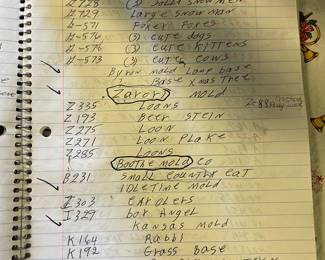 A-728 (3) Solid Snow Men
A-729 Large Snow man
A-571
A-574 (3) cute dogs
A-576 (3) cute Kittens
A-573 (3) cute cows
Byron mold Lamp base
Base Xmas Tree
Zarory mold
Z335 Loons
Z193 Beer Stein
Z275 Loon
Z271 Loon Plake
Z285 Loons
Boothe mold co
B231 Small Country cat
IDLETIME mold
I303 Carolers
I329 box Angel
Kansas mold
K164 Rabbi
K192 Grass base